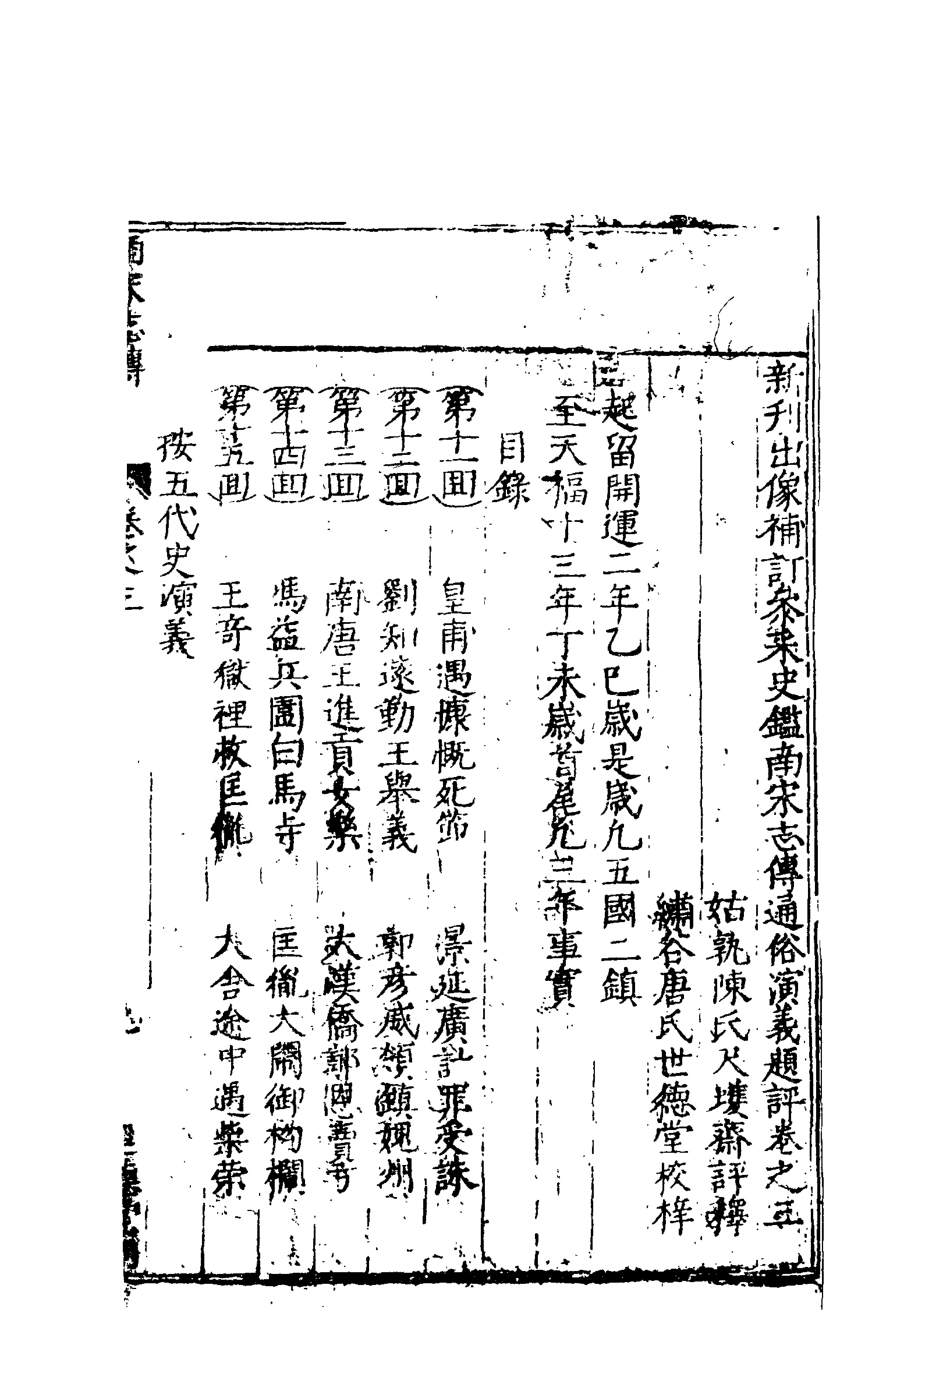 新刊出像補訂參采史鑑南宋志傳通俗演義題評卷之三
姑孰陳氏尺蠖齋評釋
繡谷唐氏世德堂校梓
起留開運二年乙巳歲是歲凡五國二鎮
至天福十三年丁未歲首尾凡三年事實
目錄
第十一回 皇甫遇慷慨死節 景延廣計罪受誅
第十二回 劉知遠勤王舉義 郭彥威領願魏州
第十三回 南唐王進貢女樂 大漢僑郭恩賣
第十四回 馮益兵圍白馬寺 匡胤大鬧御构欄
第十五回 王奇獄裡救匡胤 大舍途中遇柴榮
按五代史演義
宋志傳
卷之三